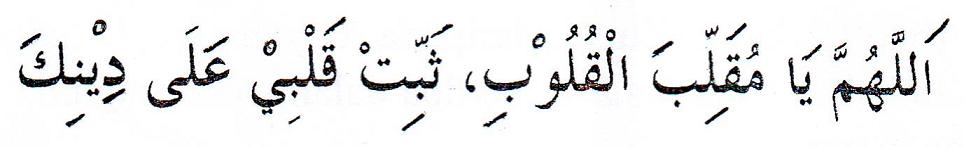 اَللَّهُمَّ يَا مُقَلِّبَ الْقُلُوْبِ، ثَبِّتْ قَلْبِيْ عَلَى دِيْنِكَ